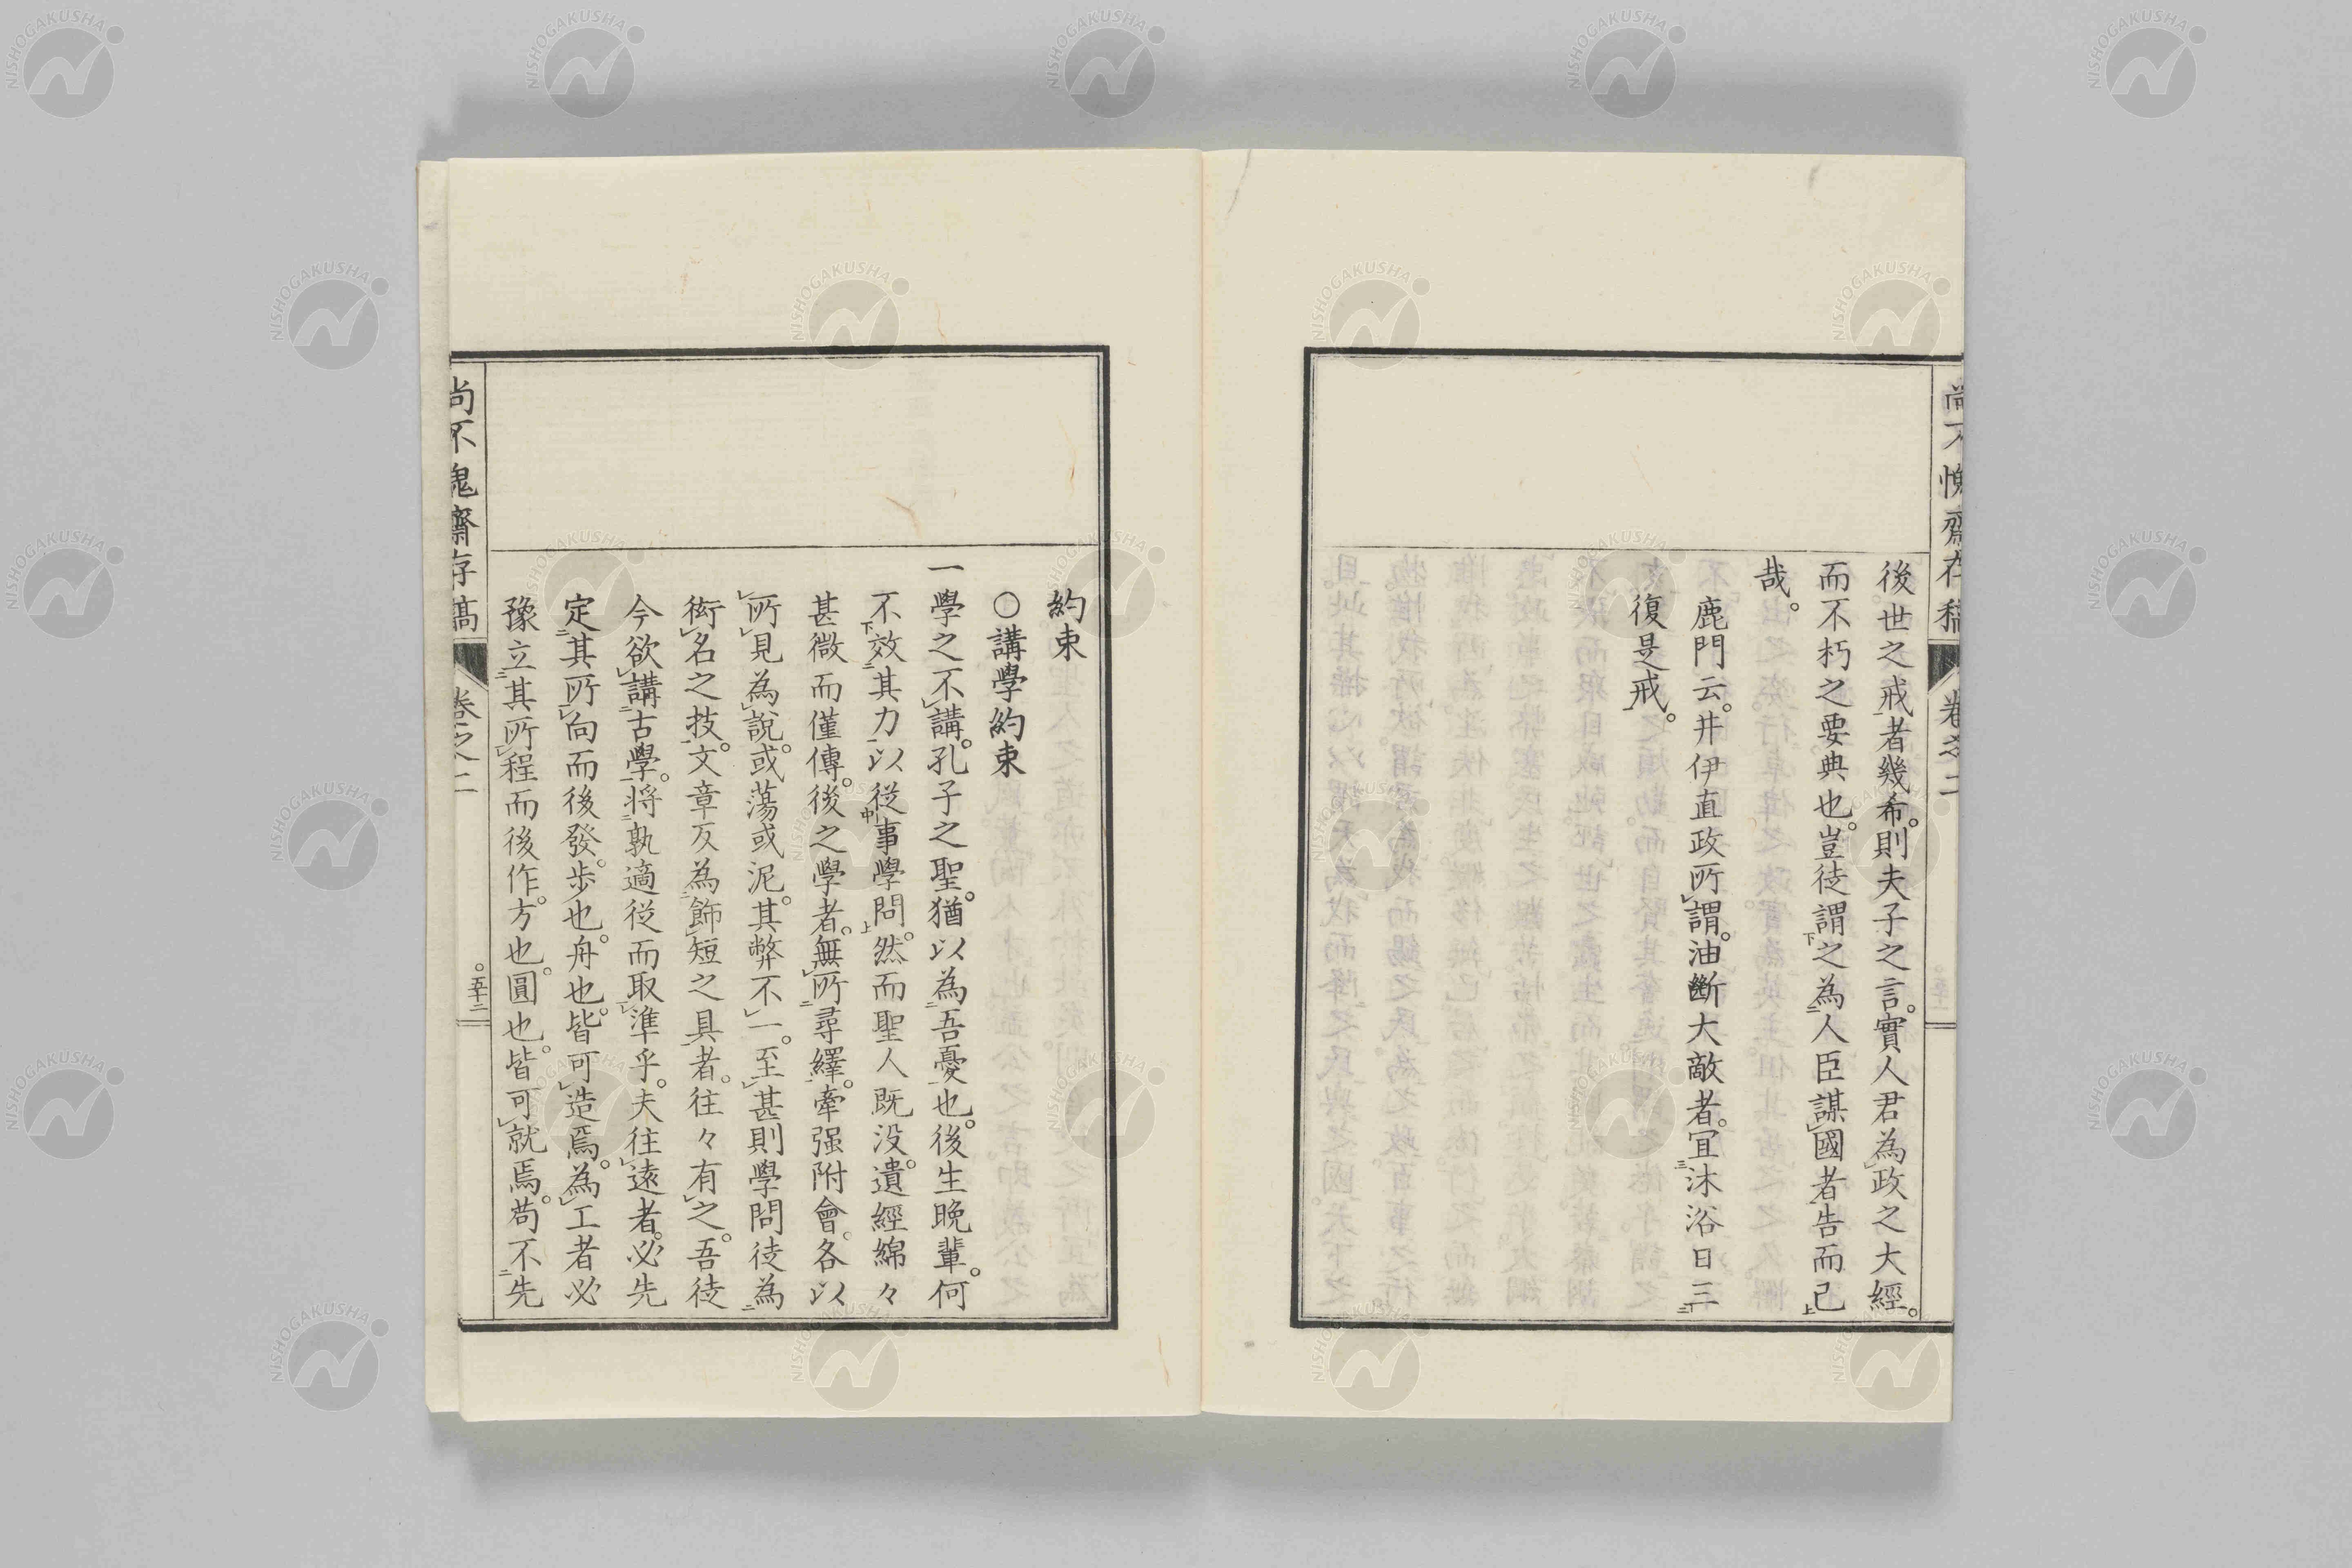 尚不愧齋存稿 卷之二
後世之戒者幾希。則夫子之言。實人君為政之大經。
而不朽之要典也。豈徒謂之為人臣謀國者告而已
哉。
鹿門云。井伊直政所謂。油斷大敵者。宜沐浴日三
復是戒。
約束
○講學約束
一學之不講。孔子之聖。猶以為吾憂也。後生晚輩。何
不效其力以從事學問。然而聖人既沒。遺經綿々
甚微而僅傳。後之學者。無所尋繹。牽强附會。各以
所見為說。或蕩或泥。其弊不一。至甚則學問徒為
衒名之技。文章反為飾短之具者。往々有之。吾徒
今欲講古學。將孰適從而取準乎。夫往遠者。必先
定其所向而後發。步也。舟也。皆可造焉。為工者必
豫立其所程而後作。方也。圓也。皆可就焉。苟不先
尚不愧齋存稿 卷之二 。五十二
NISHOGAKUSHA